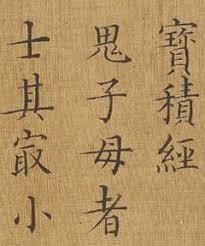 寶積經
鬼子母者
士其㝡小